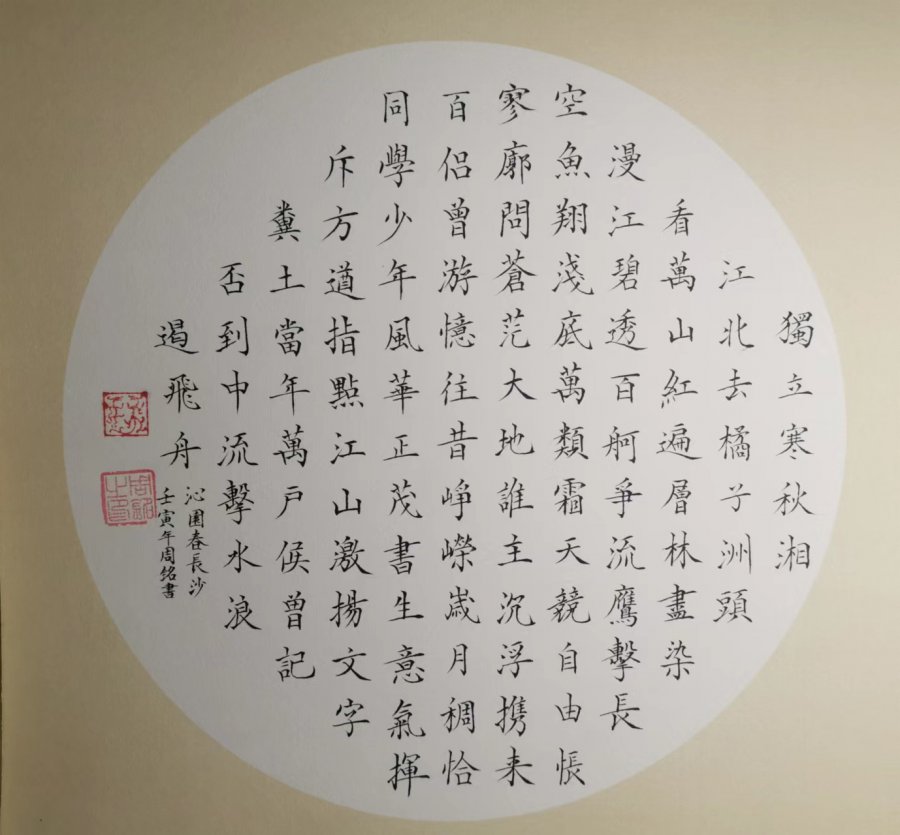 獨立寒秋湘
江北去橘子洲頭
看萬山紅遍層林盡染
漫江碧透百舸爭流鷹擊長
空魚翔淺底萬類霜天競自由悵
寥廓問蒼茫大地誰主沉浮携来
百侣曾游憶往昔崢嶸嵗月稠恰
同學少年風華正茂書生意氣揮
斥方遒指點江山激揚文字
糞土當年萬戶候曾記
否到中流擊水浪
遏飛舟
沁園春長沙
壬寅年周銘書
周銘之印